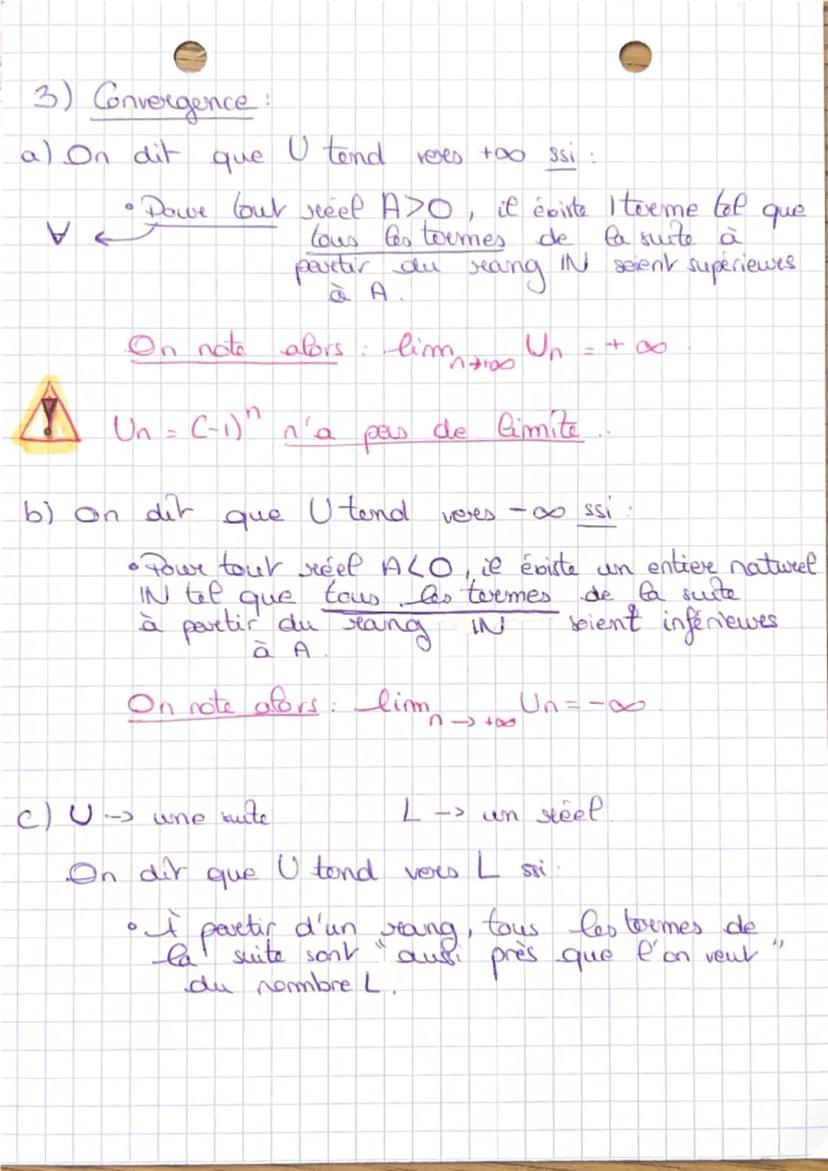 3) Convergence :
a) On dit que U tend vers +∞ ssi :
• Pour tout réel A>0, il existe 1 terme tel que
∀ ← tous les termes de la suite à
partir du rang IN soient supérieurs
à A.
On note alors : lim n→+∞ Un = +∞.
! Un = (-1)^n n'a pas de limite..
b) On dit que U tend vers -∞ ssi :
• Pour tout réel A<0, il existe un entier naturel
IN tel que tous les termes de la suite
à partir du rang IN soient inférieurs
à A.
On note alors : lim n→+∞ Un = -∞.
c) U -> une suite L -> un réel.
On dit que U tend vers L ssi.
• À partir d'un rang, tous les termes de
la suite sont "aussi près que l'on veut"
du nombre L.